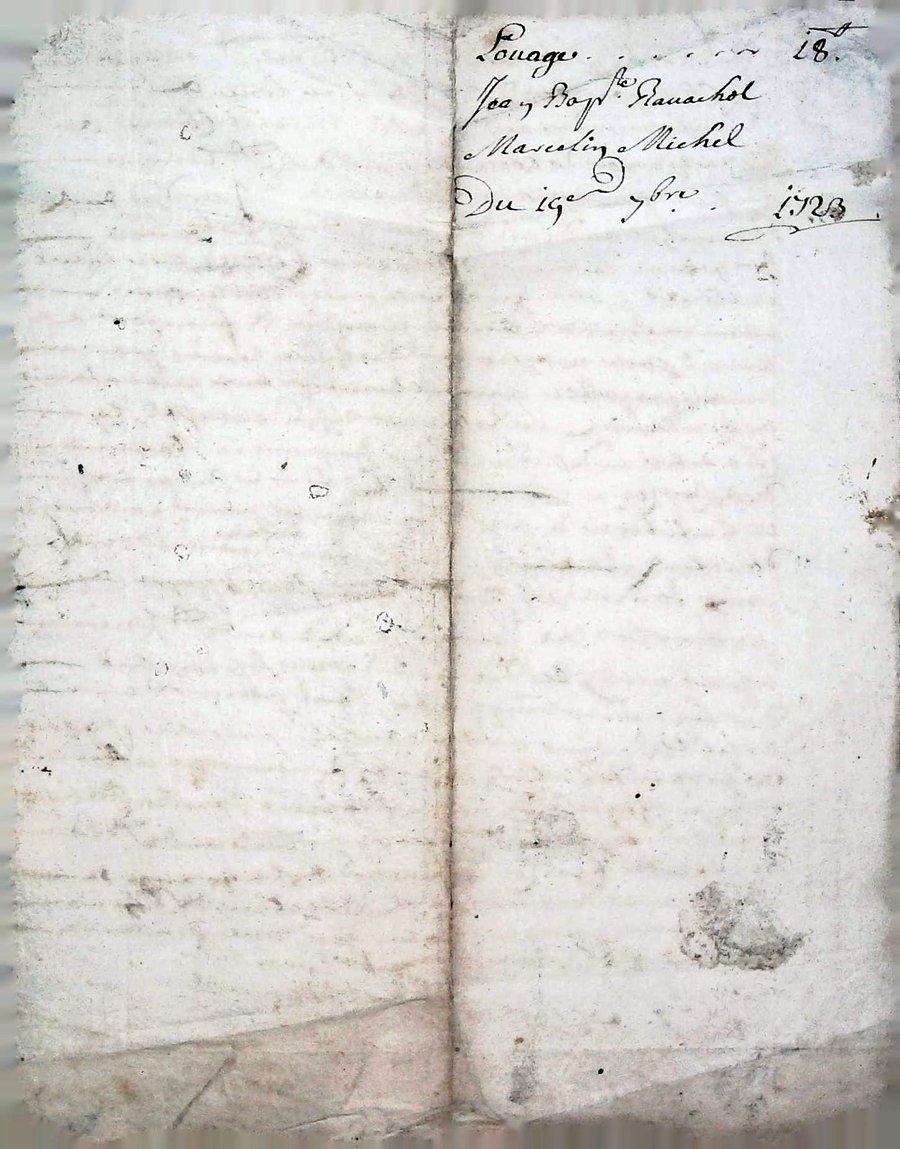 Louage . . . . . . . 18tt.
Jean Bapste. Ravachol
Marcelin Michel
Du 19e 7bre. 1723.